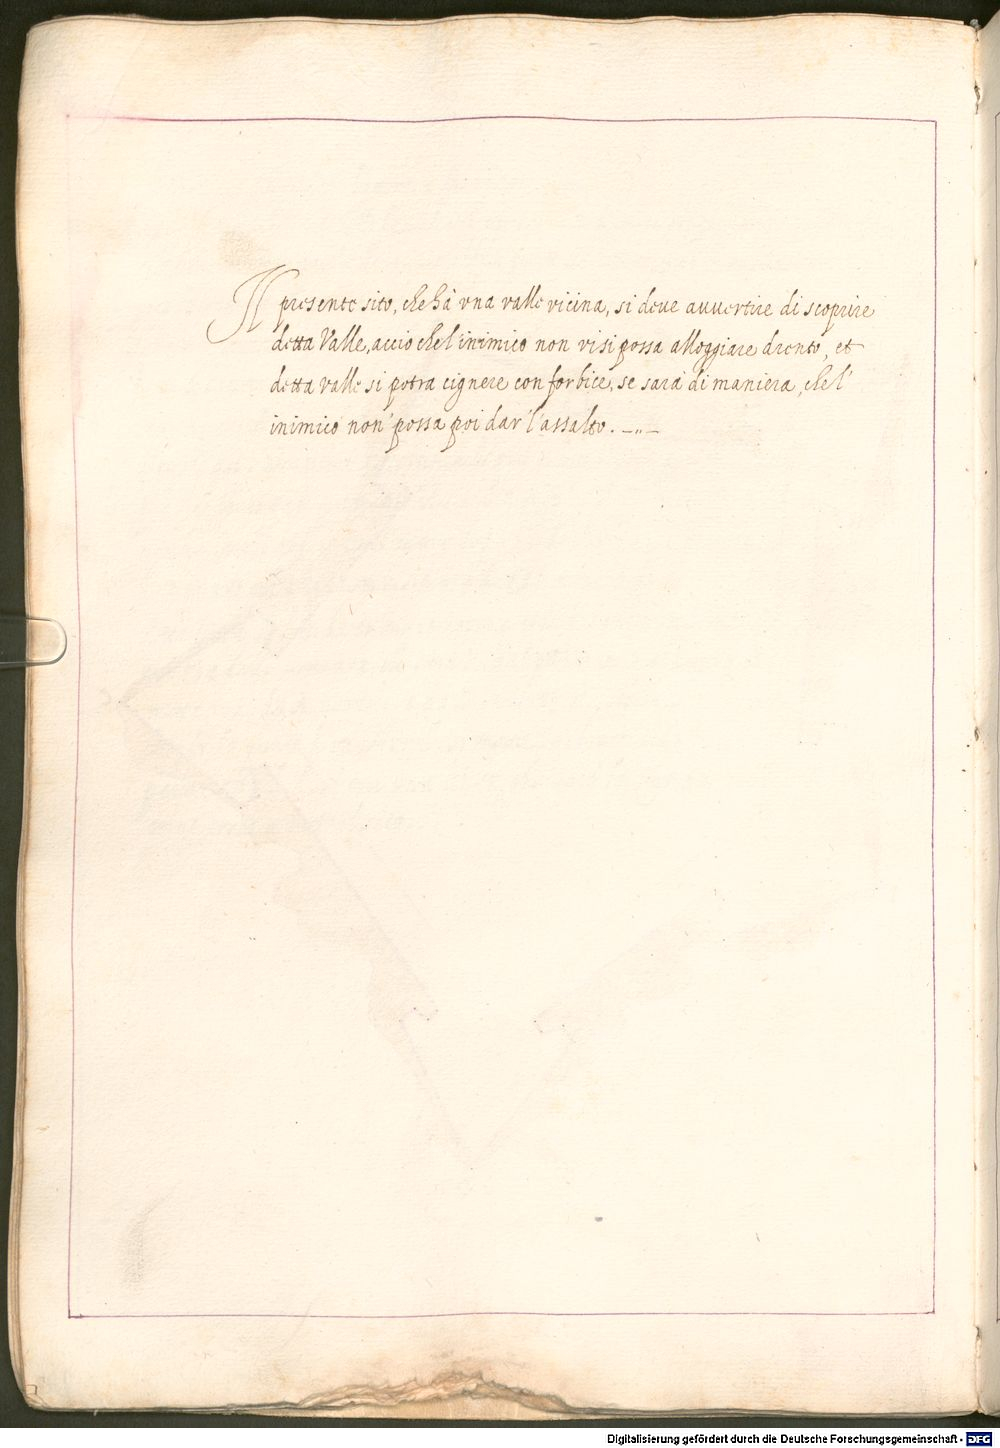 Il presente sito, che hà vna valle vicina, si deue auuertire di scoprire
detta Valle, accio che l'inimico non vi si possa alloggiare drento, et
detta valle si potra cignere con forbice, se sarà di maniera, che l'
inimico non possa poi dar l'assalto.
Digitalisierung gefördert durch die Deutsche Forschungsgemeinschaft - DFG